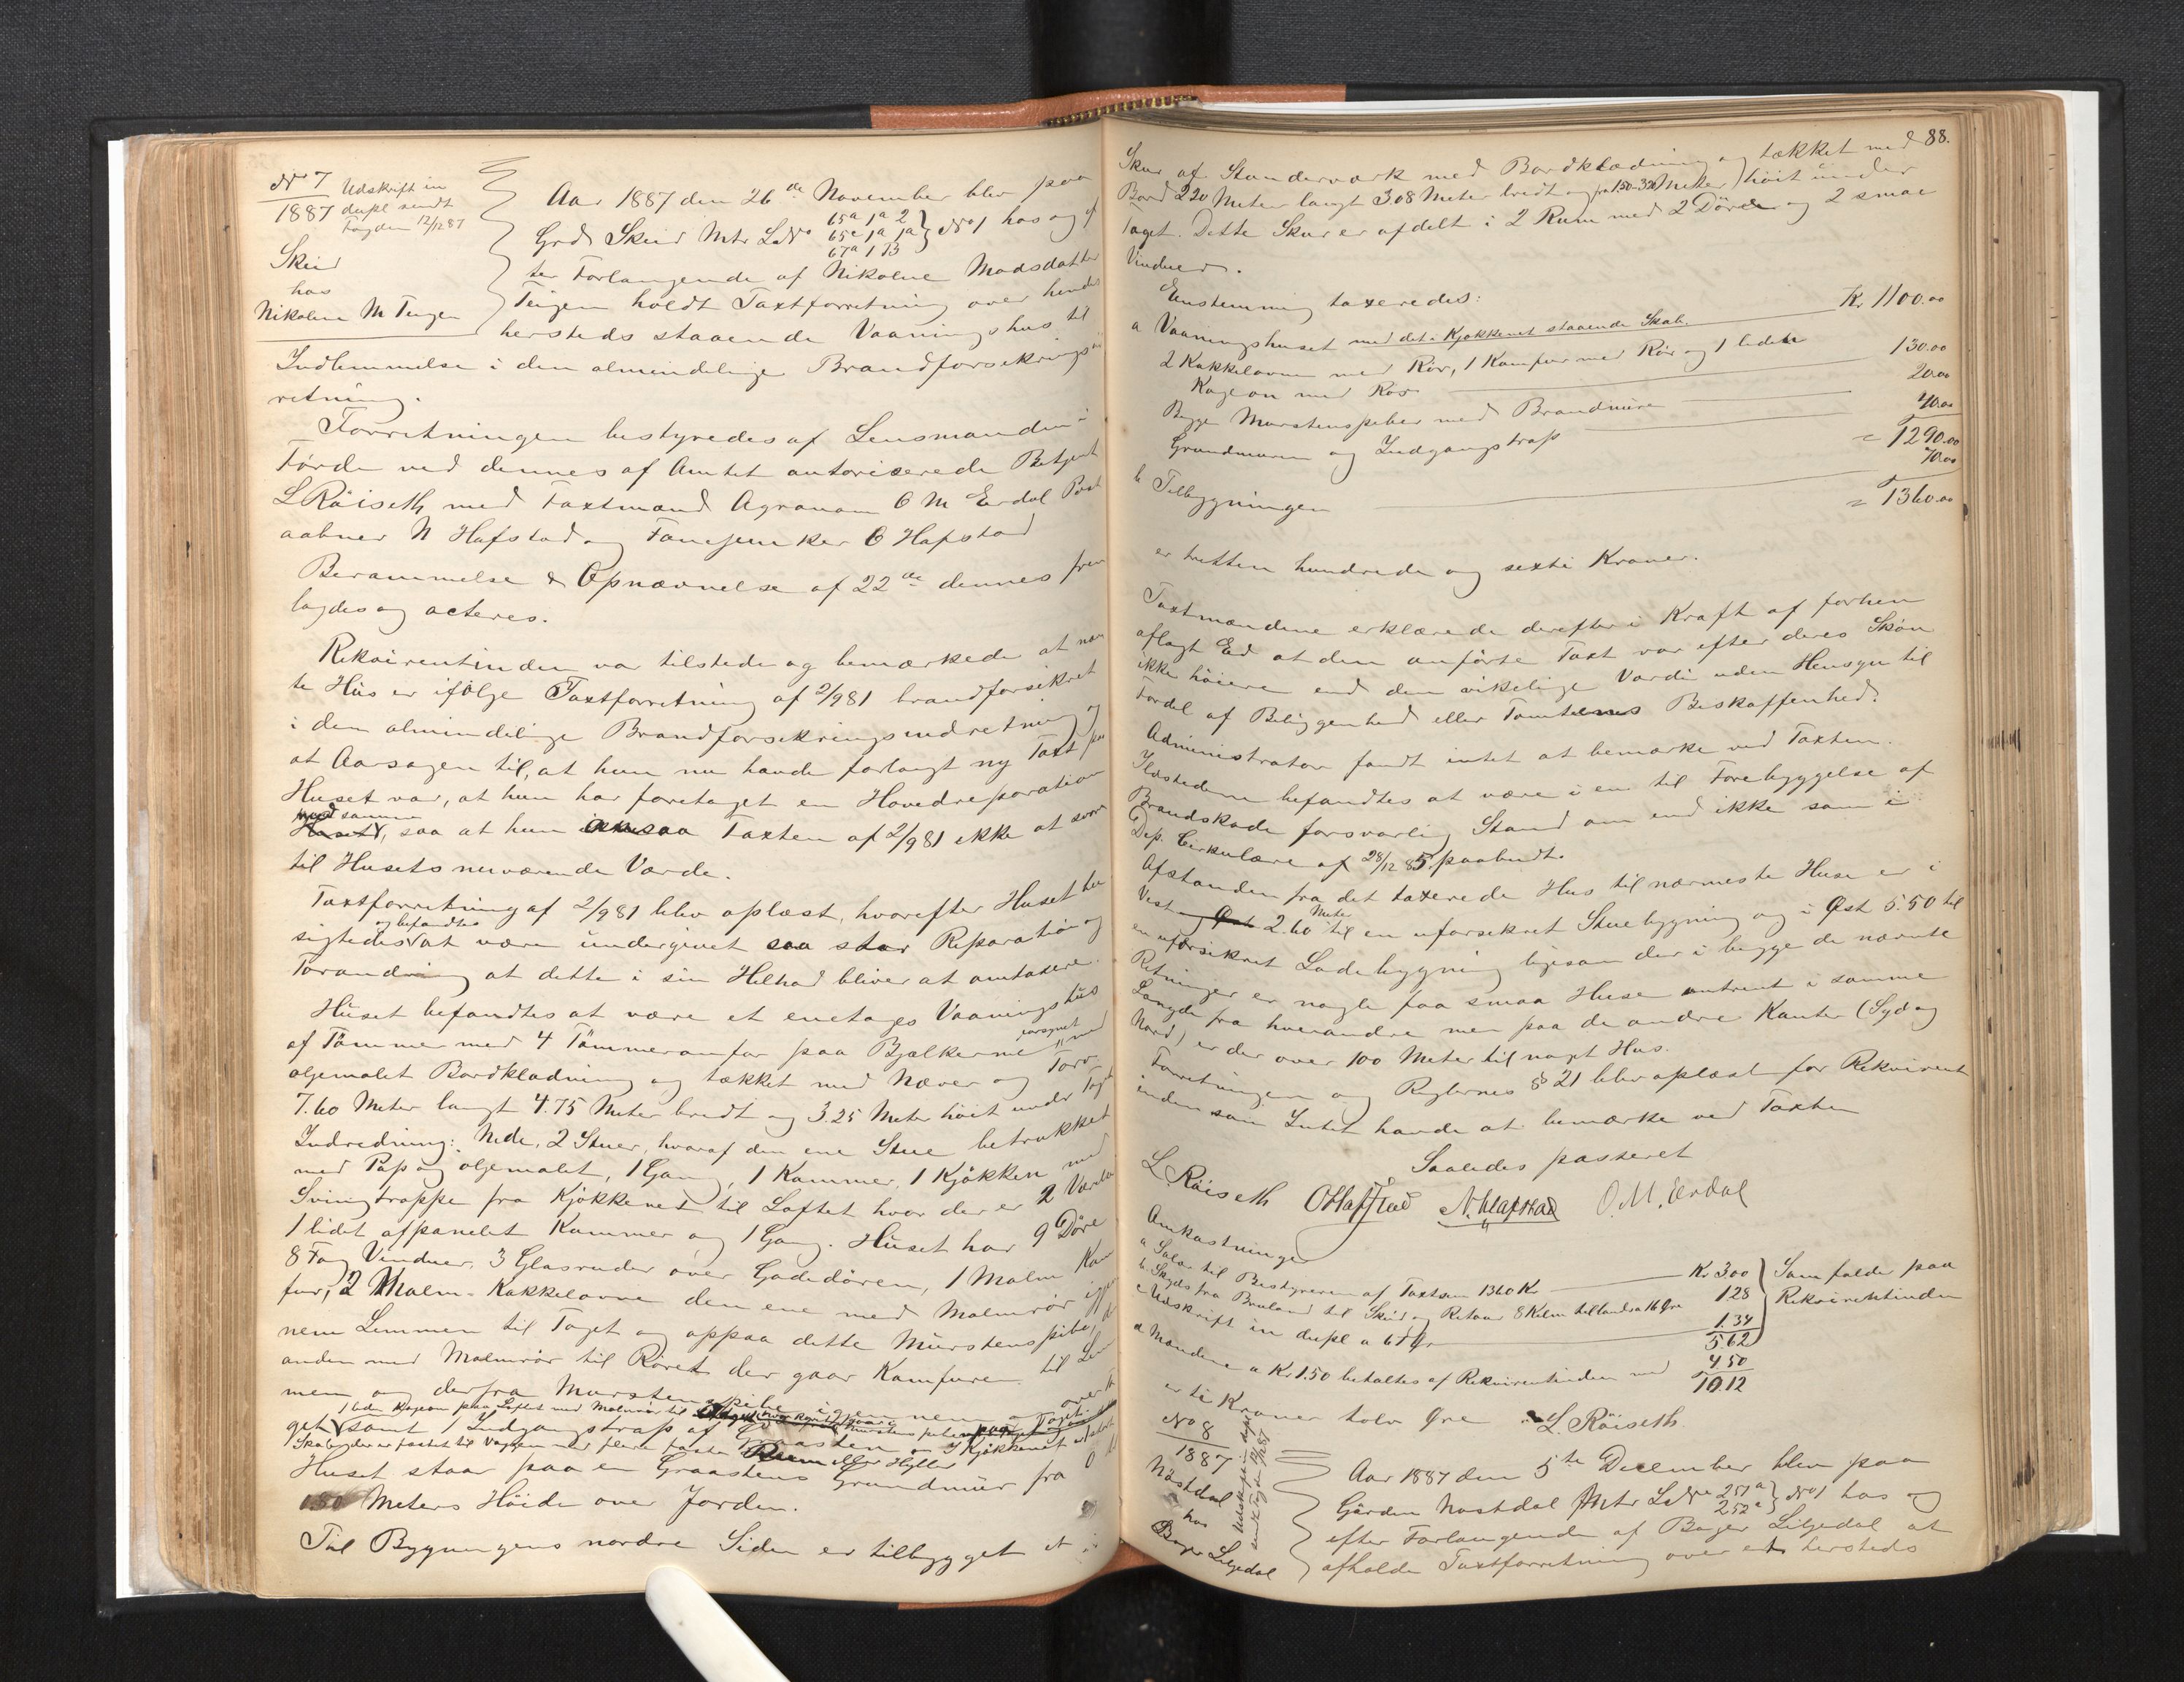 No 7
1887
Udskrift in
dupl sendt
Fogden 12/12 87
Skei
hos
Nikoline M Teigen
Aar 1887 den 26de November blev paa
Grd Skei Mtr LNo 65a 1a 2 65c 1a 1a 67a 1 B } No 1 hos og ef
ter Forlangende af Nikoline Madsdatter
Teigen holdt Taxtforretning over hendes
hersteds staaende Vaaningshus til
Indlemmelse i den almindelige Brandforsikrings
retning.
Forretningen bestyredes af Lensmanden i
Førde ved dennes af Amtet autoriserede Betjent
L Røiseth med Taxtmænd Agronom O M Erdal Post
aabner N Hafstad og Fanejunker O Hafstad
Berammelse & Opnævnelse af 22de dennes frem
lagdes og acteres.
Rekvirentinden var tilstede og bemærkede at næv
te Hus er ifølge Taxtforretning af 2/9 81 brandforsikret
i den almindelige Brandforsikringsindretning og
at Aarsagen til, at hun nu havde forlangt ny Taxt paa
Huset var, at hun har foretaget en Hovedreparation
med samme
Huset, saa at hun ansaa Taxten af 2/9 81 ikke at svare
til Husets nuværende Værde.
Taxtforretning af 2/9 81 blev oplæst, hvorefter Huset be
og befandtes
sigtedes at være undergivet saa stor Reparation og
Forandring at dette i sin Helhed bliver at omtaxere.
Huset befandtes at være et enetages Vaaningshus
af Tømmer med 4 Tømmeromfar paa Bjelkerne forsynet med
oljemalet Bordklædning og tækket med Næver og Torv
7.60 Meter langt 4.75 Meter bredt og 3.25 Meter høit under Taget
Indredning: Nede, 2 Stuer, hvoraf den ene Stue betrukket
med Pap og oljemalet, 1 Gang, 1 Kammer, 1 Kjøkken med
Svingtrappe fra Kjøkkenet til Loftet hvor der er 2 Værelser
1 lidet afpanelet Kammer og 1 Gang. Huset har 9 Døre
8 Fag Vinduer, 3 Glasruder over Gadedøren, 1 Malm Kom
fur, 2 Malm-Kakkelovne den ene med Malmrør igjen
nem Lemmen til Taget og oppaa dette Murstenspibe, d
anden med Malmrør til Røret der gaar Komfuren til Lem
men og derfra Murstenspibe igjennem og over Ta
1 liden Kogeovn paa Loftet med Malmrør til
get samt 1 Indgangstrap af Graasten og I Kjøkkenet
Skab, der er fæstet til Væggen med flere faste Rum eller Hylder
Huset staar paa en Graastens Grundmur fra 0 til
0.80 Meters Høide over Jorden.
Til Bygningens nordre Side er tilbygget et
88.
Skur af Standerværk med Bordklædning og tækket med
Bord 2.20 Meter langt 3.08 Meter bredt og fra 1.50-3.20 Meter høit under
Taget. Dette Skur er afdelt i 2 Rum med 2 Døre og 2 smaa
Vinduer.
Eenstemmig taxeredes:
a Vaaningshuset med det i Kjøkkenet staaende Skab. Kr 1100.00
2 Kakkelovne med Rør, 1 Komfur med Rør og 1 liden
Kogeovn med Rør 130.00
Begge Murstenspiber med Brandmure 20.00
Grundmuren og Indgangstrap 40.00
= 1290.00
b Tilbygningen 70.00
= 1360.00
er tretten hundrede og sexti Kroner.
Taxtmændene erklærede derefter i Kraft af forhen
aflagt Ed at den anførte Taxt var efter deres Skøn
ikke høiere end den virkelige Værdi uden Hensyn til
Fordel af Beliggenhed eller Tomtens Beskaffenhed.
Administrator fandt intet at bemærke ved Taxten.
Ildstederne befandtes at være i en til Forebyggelse af
Brandskade forsvarlig Stand om end ikke som i
Dep. Cirkulære af 28/12 85 paabudt.
Afstanden fra det taxerede Hus til nærmeste Huse er i
Vest og Øst 2.60 Meter til en uforsikret Stuebygning og i Øst 5.50 til
en uforsikret Ladebygning ligesom der i begge de nævnte
Retninger er nogle faa smaa Huse omtrent i samme
Længde fra hverandre men paa de andre Kanter (Syd og
Nord) er der over 100 Meter til noget Hus.
Forretningen og Reglernes § 21 blev oplæst for Rekvirent
inden som Intet havde at bemærke ved Taxten
Saaledes passeret
L. Røiseth O Hafstad N. Hafstad O. M. Erdal
Omkostninger
a Salær til Bestyreren af Taxtsum 1360 Kr Kr 3.00
b. Skyds fra Bruland til Skei og Retour 8 Kilm tillands a 16 Øre 1.28
c Udskrift in dupl a 67 Øre 1.34
5.62
Som falder paa
Rekvirentinden
d Mændene a Kr 1.50 betaltes af Rekvirentinden med 4.50
10.12
er ti Kroner tolv Øre L. Røiseth
No 8
1887
Udskrift in dupl
sendt Fogden 12/12 87
Nøstdal
hos
Bager Liljedal
Aar 1887 den 5te December blev paa
Gården Nøstdal Mtr LNo 251a 252c } No 1 hos og
efter Forlangende af Bager Liljedal at
afholde Taxtforretning over et hersteds